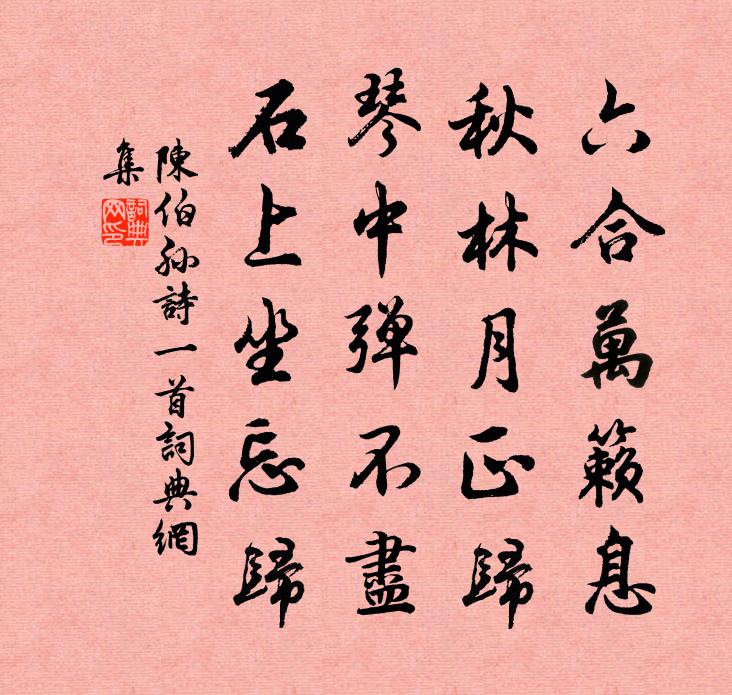 六合萬籟息
秋林月正歸
琴中弹不盡
石上坐忘歸
陳伯孫詩一首詞典網
集
詞典
网印